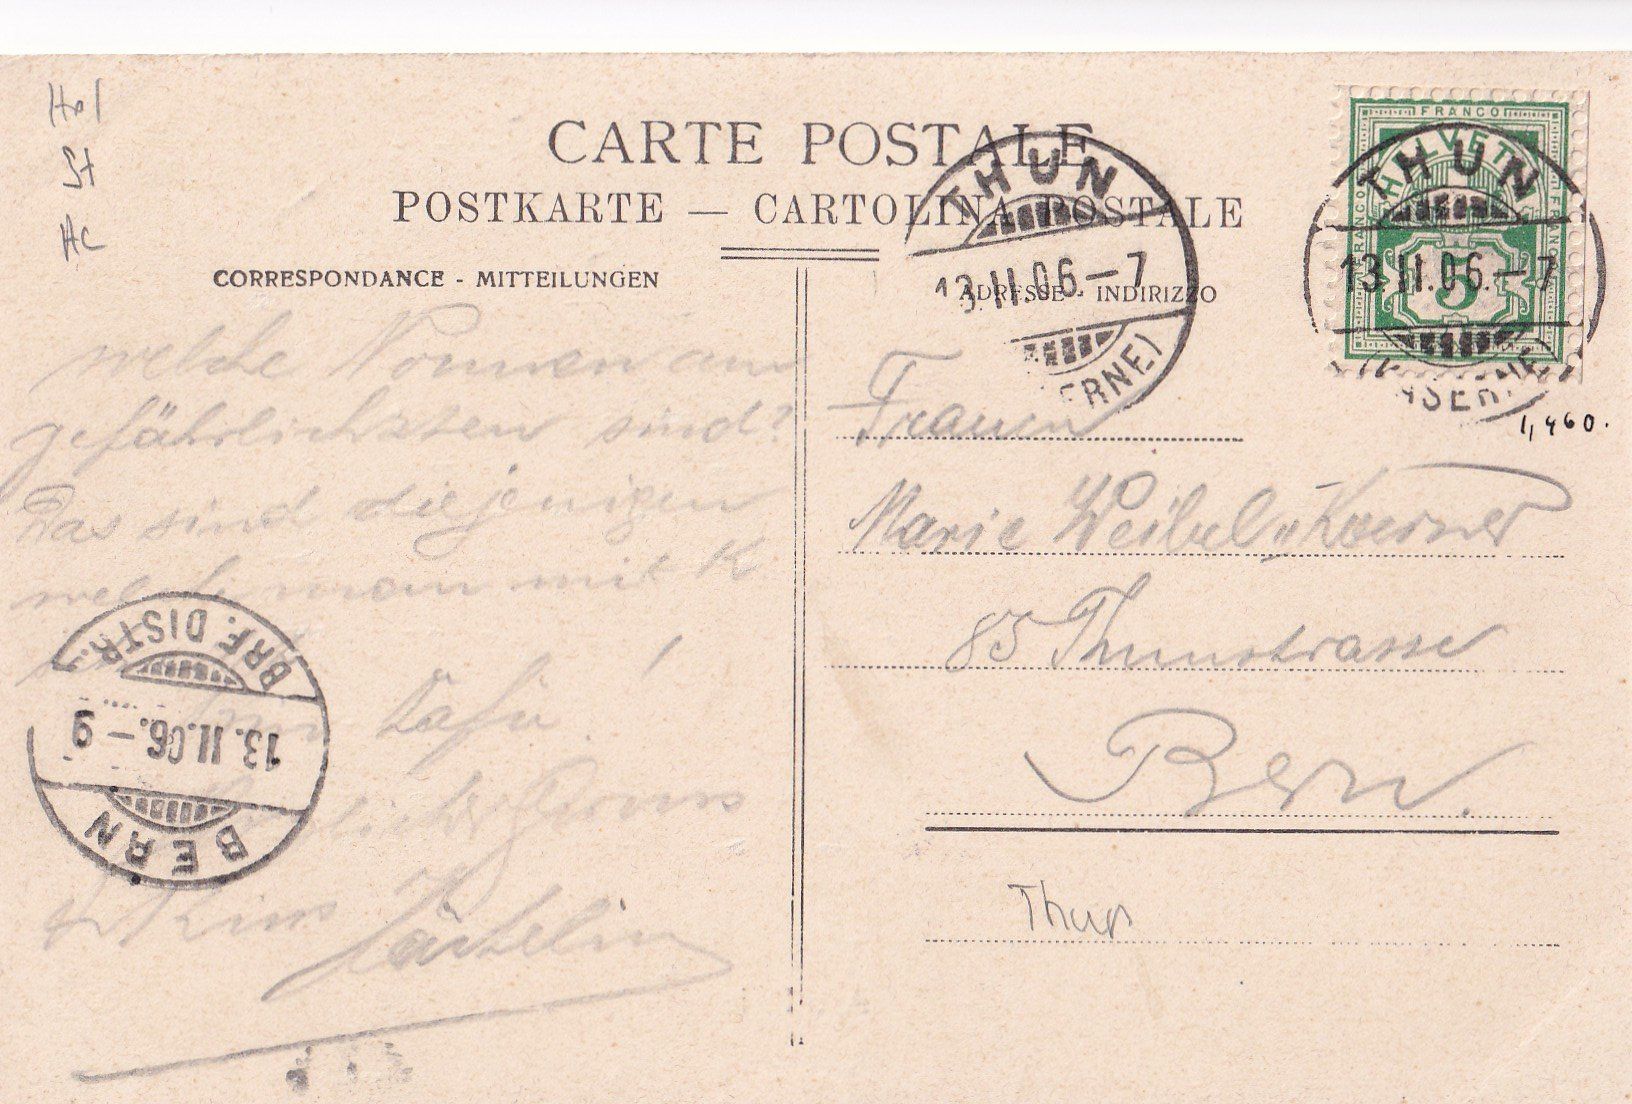 Hol
St
Ac
CARTE POSTALE
POSTKARTE — CARTOLINA POSTALE
CORRESPONDANCE - MITTEILUNGEN
welche Nonnen am
gefährlichsten sind?
Das sind diejenigen
welche man mit K
Dafür!
Gruss
Kuss
ADRESSE - INDIRIZZO
Frauen
Marie Weibel
85 Thunstrasse
Bern.
Thun
FRANCO
FRANCO
FRANCO
HELVETIA
5
THUN
13.II.06.–7
(KASERNE)
THUN
13.II.06–7
(KASERNE)
1,460.
BRF. DISTR.
13.II.06.–9
BERN